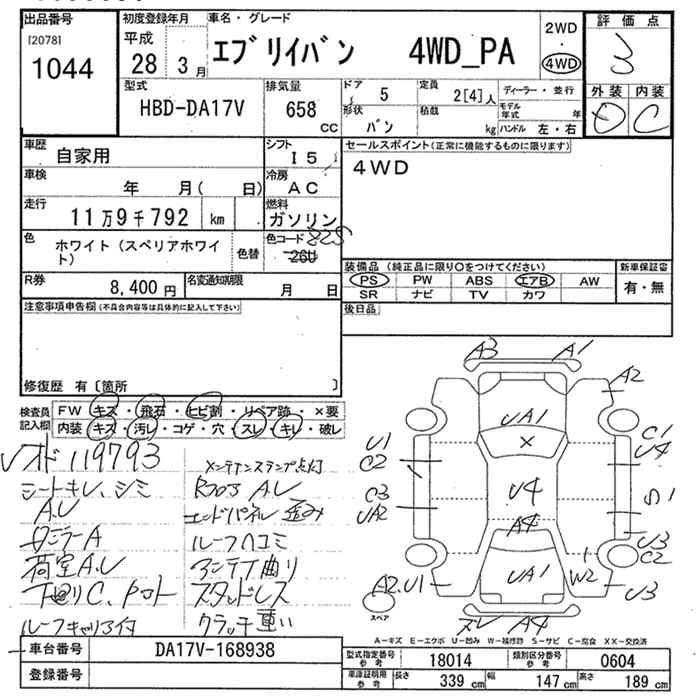 出品番号 初度登録年月 車名・グレード 評価点
[2078]
1044
平成 28年 3月
エブリイバン 4WD_PA
2WD
・
4WD
3
型式 排気量 ドア 5 定員 2[4]人 ディーラー・並行
HBD-DA17V 658 cc 形状 バン 積載 kg モデル年式 年 ハンドル 左・右
外装 内装
D C
車歴 自家用 シフト I5
セールスポイント(正常に機能するものに限ります)
4WD
車検 年 月( 日) 冷房 AC
走行 11万9千792 km 燃料 ガソリン
色 ホワイト(スペリアホワイト) 色替 色コード 26U
R券 8,400円 名変通知期限 月 日
装備品 (純正品に限り○をつけてください) 新車保証書
PS PW ABS エアB AW 有・無
SR ナビ TV カワ
注意事項申告欄(不具合内容等は具体的に記入して下さい) 後日品
修復歴 有〔箇所 〕
検査員記入欄 FW キズ・飛石・ヒビ割・リペア跡・×要
内装 キズ・汚レ・コゲ・穴・スレ・キレ・破レ
119793
メンテナンスランプ点灯
シートキレ、シミ
A.U
エンドパネル 歪み
ルーフ凹コミ
荷室A.U
アンテナ曲り
スタッドレス
ルーフキャリア付
クラッチ重い
A3 A1
A2
UA1
U1
C2
C1
U4
×
C3
UA2
U4
S1
A4
U3
C2
A2.U1
UA1
W2
U3
スペア
ズレ A4
A-キズ E-エクボ U-凹み W-補修跡 S-サビ C-腐食 XX-交換済
車台番号 DA17V-168938
登録番号
型式指定番号 参考 18014 類別区分番号 参考 0604
車庫証明用 参考 長さ 339 cm 幅 147 cm 高さ 189 cm